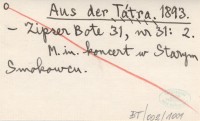 o Aus der Tátra. 1893.
- Zipser Bote 31, nr 31: 2.
M. in. koncert w Starym
Smokowcu.